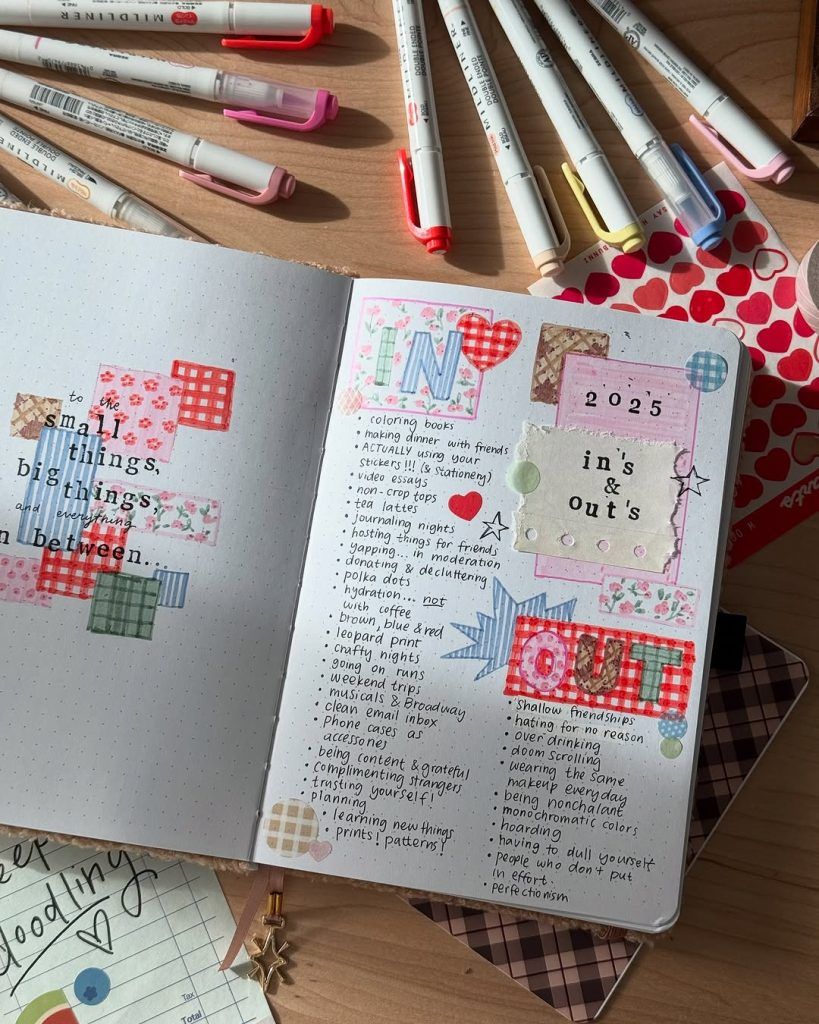 MILDLINER
DOUBLE ENDED
MILDLINER
DOUBLE ENDED
MILDLINER
DOUBLE ENDED
to the
small
things,
big things,
and everything
n between...
IN
coloring books
• making dinner with friends
• ACTUALLY using your
stickers!!! (& stationery)
• video essays
• non-crop tops
• tea lattes
• journaling nights
• hosting things for friends
• yapping... in moderation
• donating & decluttering
• polka dots
• hydration... not
with coffee
• brown, blue & red
• leopard print
• crafty nights
• going on runs
• weekend trips
• musicals & Broadway
• clean email inbox
• phone cases as
accessories
• being content & grateful
• complimenting strangers
• trusting yourself!
• planning
• learning new things
• prints! patterns!
2025
in's
&
out's
OUT
• Shallow friendships
• hating for no reason
• over drinking
• doom scrolling
• wearing the same
makeup everyday
• being nonchalant
• monochromatic colors
• hoarding
• having to dull yourself
• people who don't put
in effort.
• perfectionism
doodling
Tax
Total